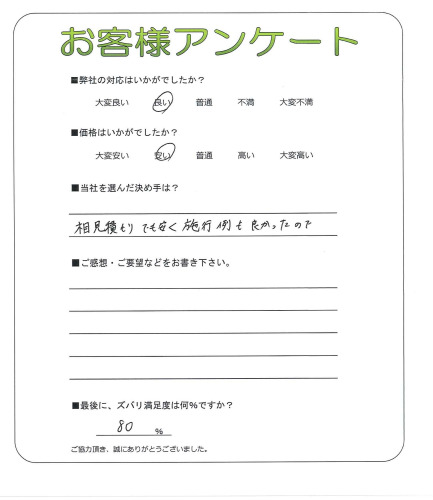 お客様アンケート
■弊社の対応はいかがでしたか？
大変良い 良い 普通 不満 大変不満
■価格はいかがでしたか？
大変安い 安い 普通 高い 大変高い
■当社を選んだ決め手は？
相見積もりでも安く施行例も良かったので
■ご感想・ご要望などをお書き下さい。
■最後に、ズバリ満足度は何%ですか？
80 %
ご協力頂き、誠にありがとうございました。